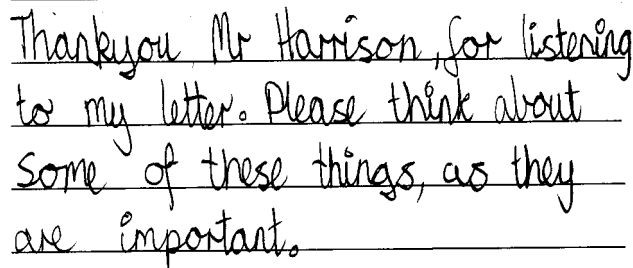 Thankyou Mr Harrison, for listening
to my letter. Please think about
some of these things, as they
are important.